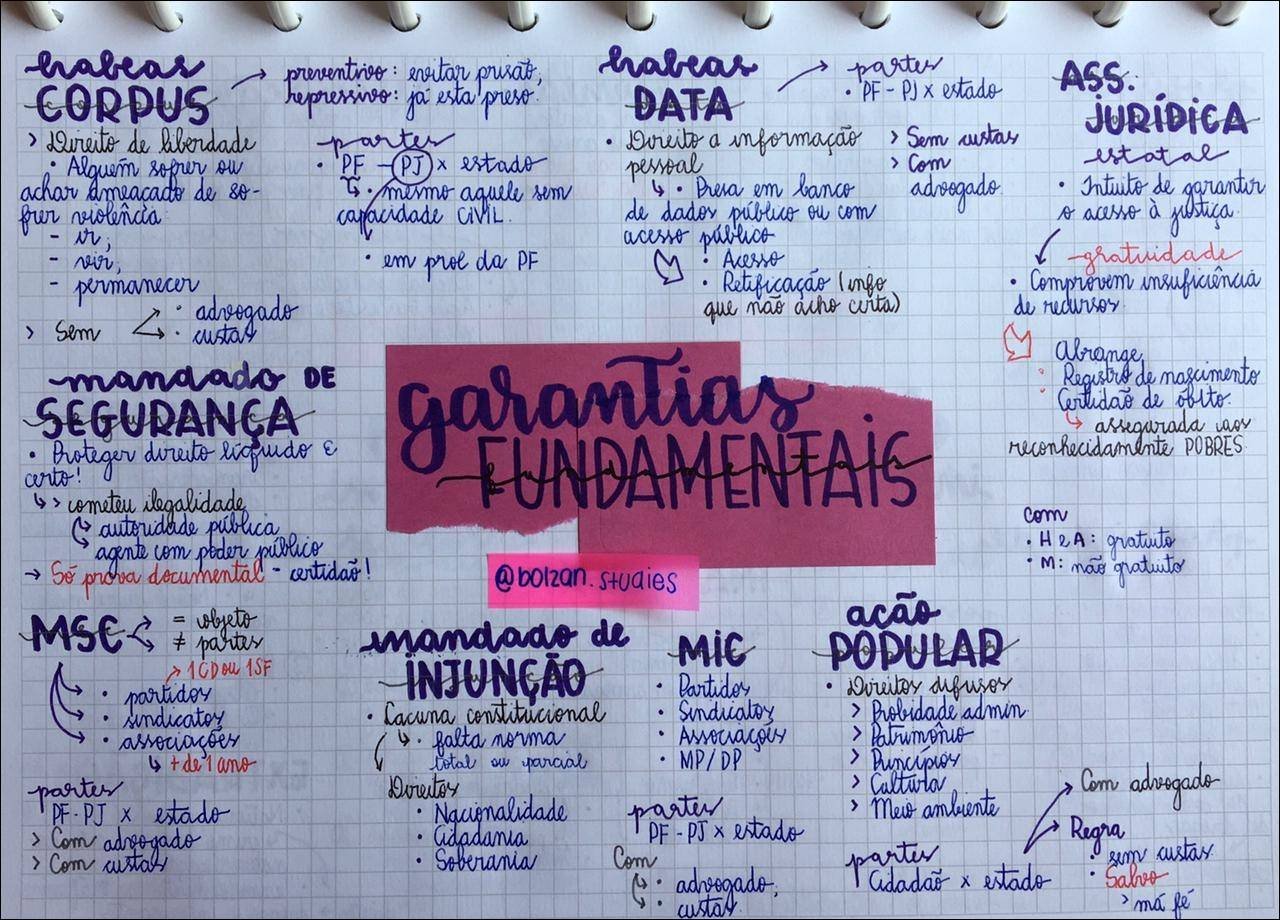 habeas
CORPUS
preventivo: evitar prisão;
repressivo: já esta preso.
> Direito de liberdade
• Alguém sofrer ou
achar ameaçado de so-
frer violência
- ir;
- vir;
- permanecer
> Sem
• advogado
• custas
partes
• PF - PJ x estado
• mesmo aquele sem
capacidade CIVIL.
• em prol da PF
habeas
DATA
partes
• PF - PJ x estado
• Direito a informação
pessoal
• Presa em banco
de dados público ou com
acesso público
• Acesso
• Retificação (info
que não acho certa)
> Sem custas
> Com
advogado.
ASS.
JURÍDICA
estatal
• Intuito de garantir
o acesso à justiça.
gratuidade
• Comprovem insuficiência
de recursos.
Abrange,
• Registro de nascimento
• Certidão de óbito.
assegurada aos
reconhecidamente POBRES.
com
• H e A: gratuito
• M: não gratuito
mandado DE
SEGURANÇA
• Proteger direito líquido E
certo!
> cometeu ilegalidade
autoridade pública
agente com poder público
→ Só prova documental - certidão!
garantias
FUNDAMENTAIS
fundamentais
@bolzan.studies
MSC
= objeto
≠ partes
1CD ou 1SF
• partidos
• sindicatos
• associações
+ de 1 ano
partes
PF-PJ x estado
> Com advogado
> Com custas
mandado de
INJUNÇÃO
• Lacuna constitucional
• falta norma
total ou parcial
Direitos
• Nacionalidade
• Cidadania
• Soberania
MIC
• Partidos
• Sindicatos
• Associações
• MP/DP
partes
PF-PJ x estado
Com
• advogado;
• custas.
ação
POPULAR
• Direitos difusos
> Probidade admin.
> Patrimônio
> Princípios
> Cultura
> Meio ambiente
partes
Cidadão x estado
Com advogado
Regra
• sem custas.
• Salvo
> má fé